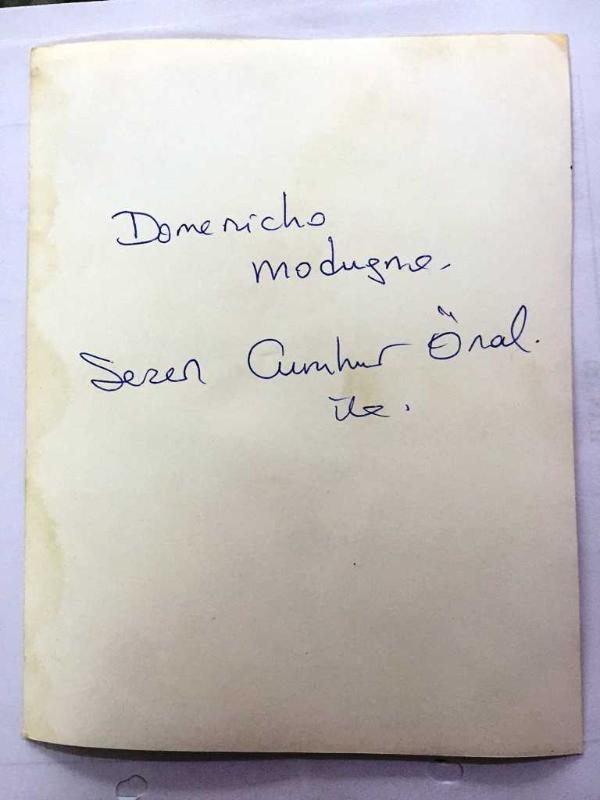 Domenicho
modugno.
Sezen Cumhur Önal.
ile.